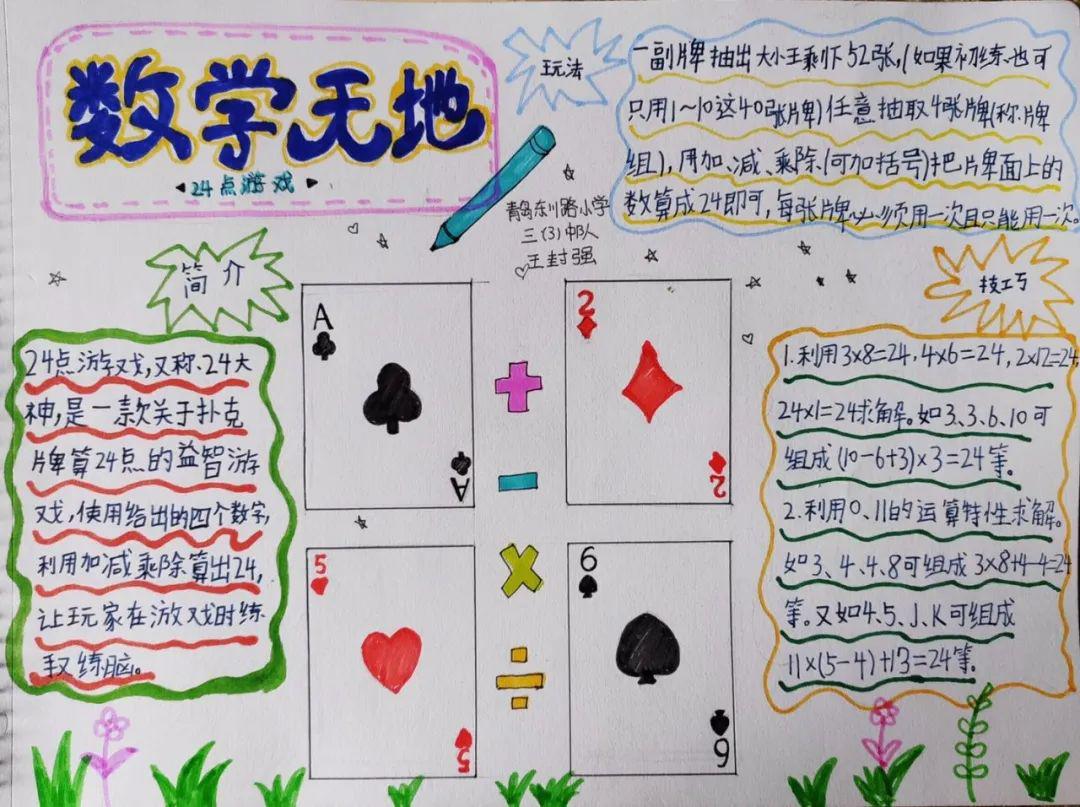 数学天地
24点游戏
青岛东川路小学
三(3)中队
王封强
玩法
一副牌抽出大小王剩下52张,(如果初练也可
只用1~10这40张牌)任意抽取4张牌(称牌
组),用加、减、乘、除(可加括号)把牌面上的
数算成24即可,每张牌必须用一次且只能用一次。
简介
24点游戏,又称24大
神,是一款关于扑克
牌算24点的益智游
戏,使用给出的四个数字,
利用加减乘除算出24,
让玩家在游戏时练
手又练脑。
A
A
2
2
5
5
6
6
+
-
×
÷
技巧
1.利用3×8=24,4×6=24,2×12=24,
24×1=24求解。如3、3、6、10可
组成(10-6+3)×3=24等。
2.利用0、11的运算特性求解。
如3、4、4、8可组成3×8+4-4=24
等。又如4、5、J、K可组成
11×(5-4)+13=24等。